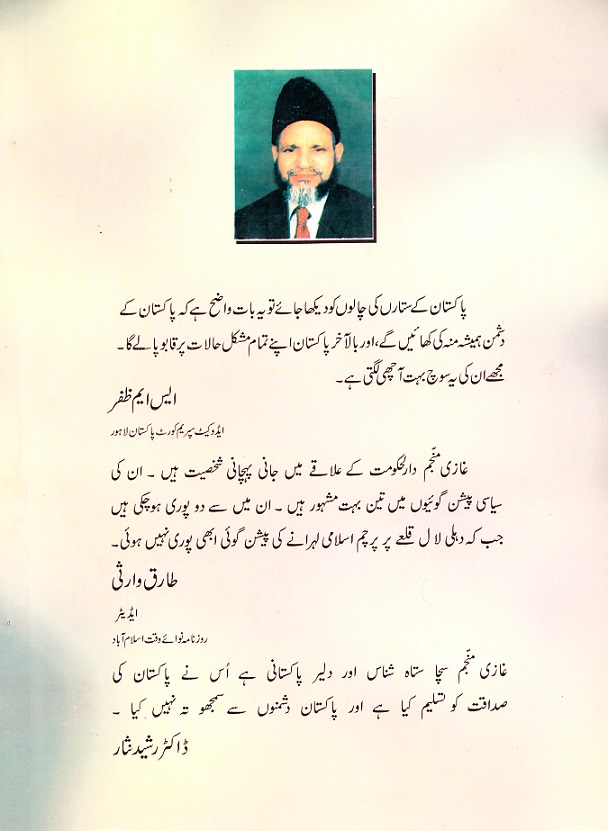 پاکستان کے ستارں کی چالوں کو دیکھا جائے تو یہ بات واضح ہے کہ پاکستان کے
دشمن ہمیشہ منہ کی کھائیں گے، اور بالآخر پاکستان اپنے تمام مشکل حالات پر قابو پالے گا ۔
مجھے ان کی یہ سوچ بہت آچھی لگتی ہے ۔
ایس ایم ظفر
ایڈوکیٹ سپریم کورٹ پاکستان لاہور
غازی منّجم دارلحکومت کے علاقے میں جانی پہچانی شخصیت ہیں ۔ ان کی
سیاسی پیشن گوئیوں میں تین بہت مشہور ہیں ۔ ان میں سے دو پوری ہوچکی ہیں
جب کہ دہلی لال قلعے پر پرچم اسلامی لہرانے کی پیشن گوئی ابھی پوری نہیں ہوئی ۔
طارق وارثی
ایڈیٹر
روزنامہ نوائے وقت اسلام آباد
غازی منّجم سچا ستاہ شناس اور دلیر پاکستانی ہے اُس نے پاکستان کی
صداقت کو تسلیم کیا ہے اور پاکستان دشمنوں سے سمجھو تہ نہیں کیا ۔
ڈاکٹر رشید نثار